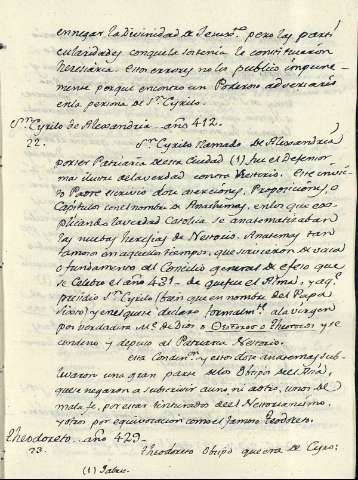 en negar la divinidad de Jesuxpto. pero las parti
cularidades conque la sostenia le constituieron
heresiarca. estos errores no los publicó impune-
mente porque encontro un Poderoso adversario
en la persona de Sn. Cyrilo.
Sn. Cyrilo de Alessandria. año 412.
22. Sn. Cyrilo llamado de Alessandria
por ser Patriarca de esta Ciudad (1) fue el Defensor
mas ilustre de la verdad contra Nestorio. Este invic-
to Padre escrivió doce aserciones, Proposiciones, o
Capitulos con el nombre de Anathemas, en los que ex-
plicando la verdad Catolica se anatematizaban
las nuebas heregias de Nestorio. Anatemas tan
famosos en aquellos tiempos, que sirvieron de vasa
o fundamento al Concilio general de Efeso que
se Celebró el año 431 - de que fue el Alma, y aq.
presidio Sn. Cyrilo (bien que en nombre del Papa
y en el que se declaró formalmte. a la virgen
por verdadera Me. de Dios o y se
condenó y depuso al Patriarca Nestorio.
Esta Condenn. y estos doce anatemas sub-
levaron una gran parte de los Obispos del Asia,
que se negaron a subscrivir a uno ni a otro, unos de
mala fe, por estar tinturados del Nestorianismo,
y otros por equivocacion como el famoso Teodoreto.
Theodoreto. año 423-
23. Theodoreto Obispo que era de Cyro:
(1) Fabric.